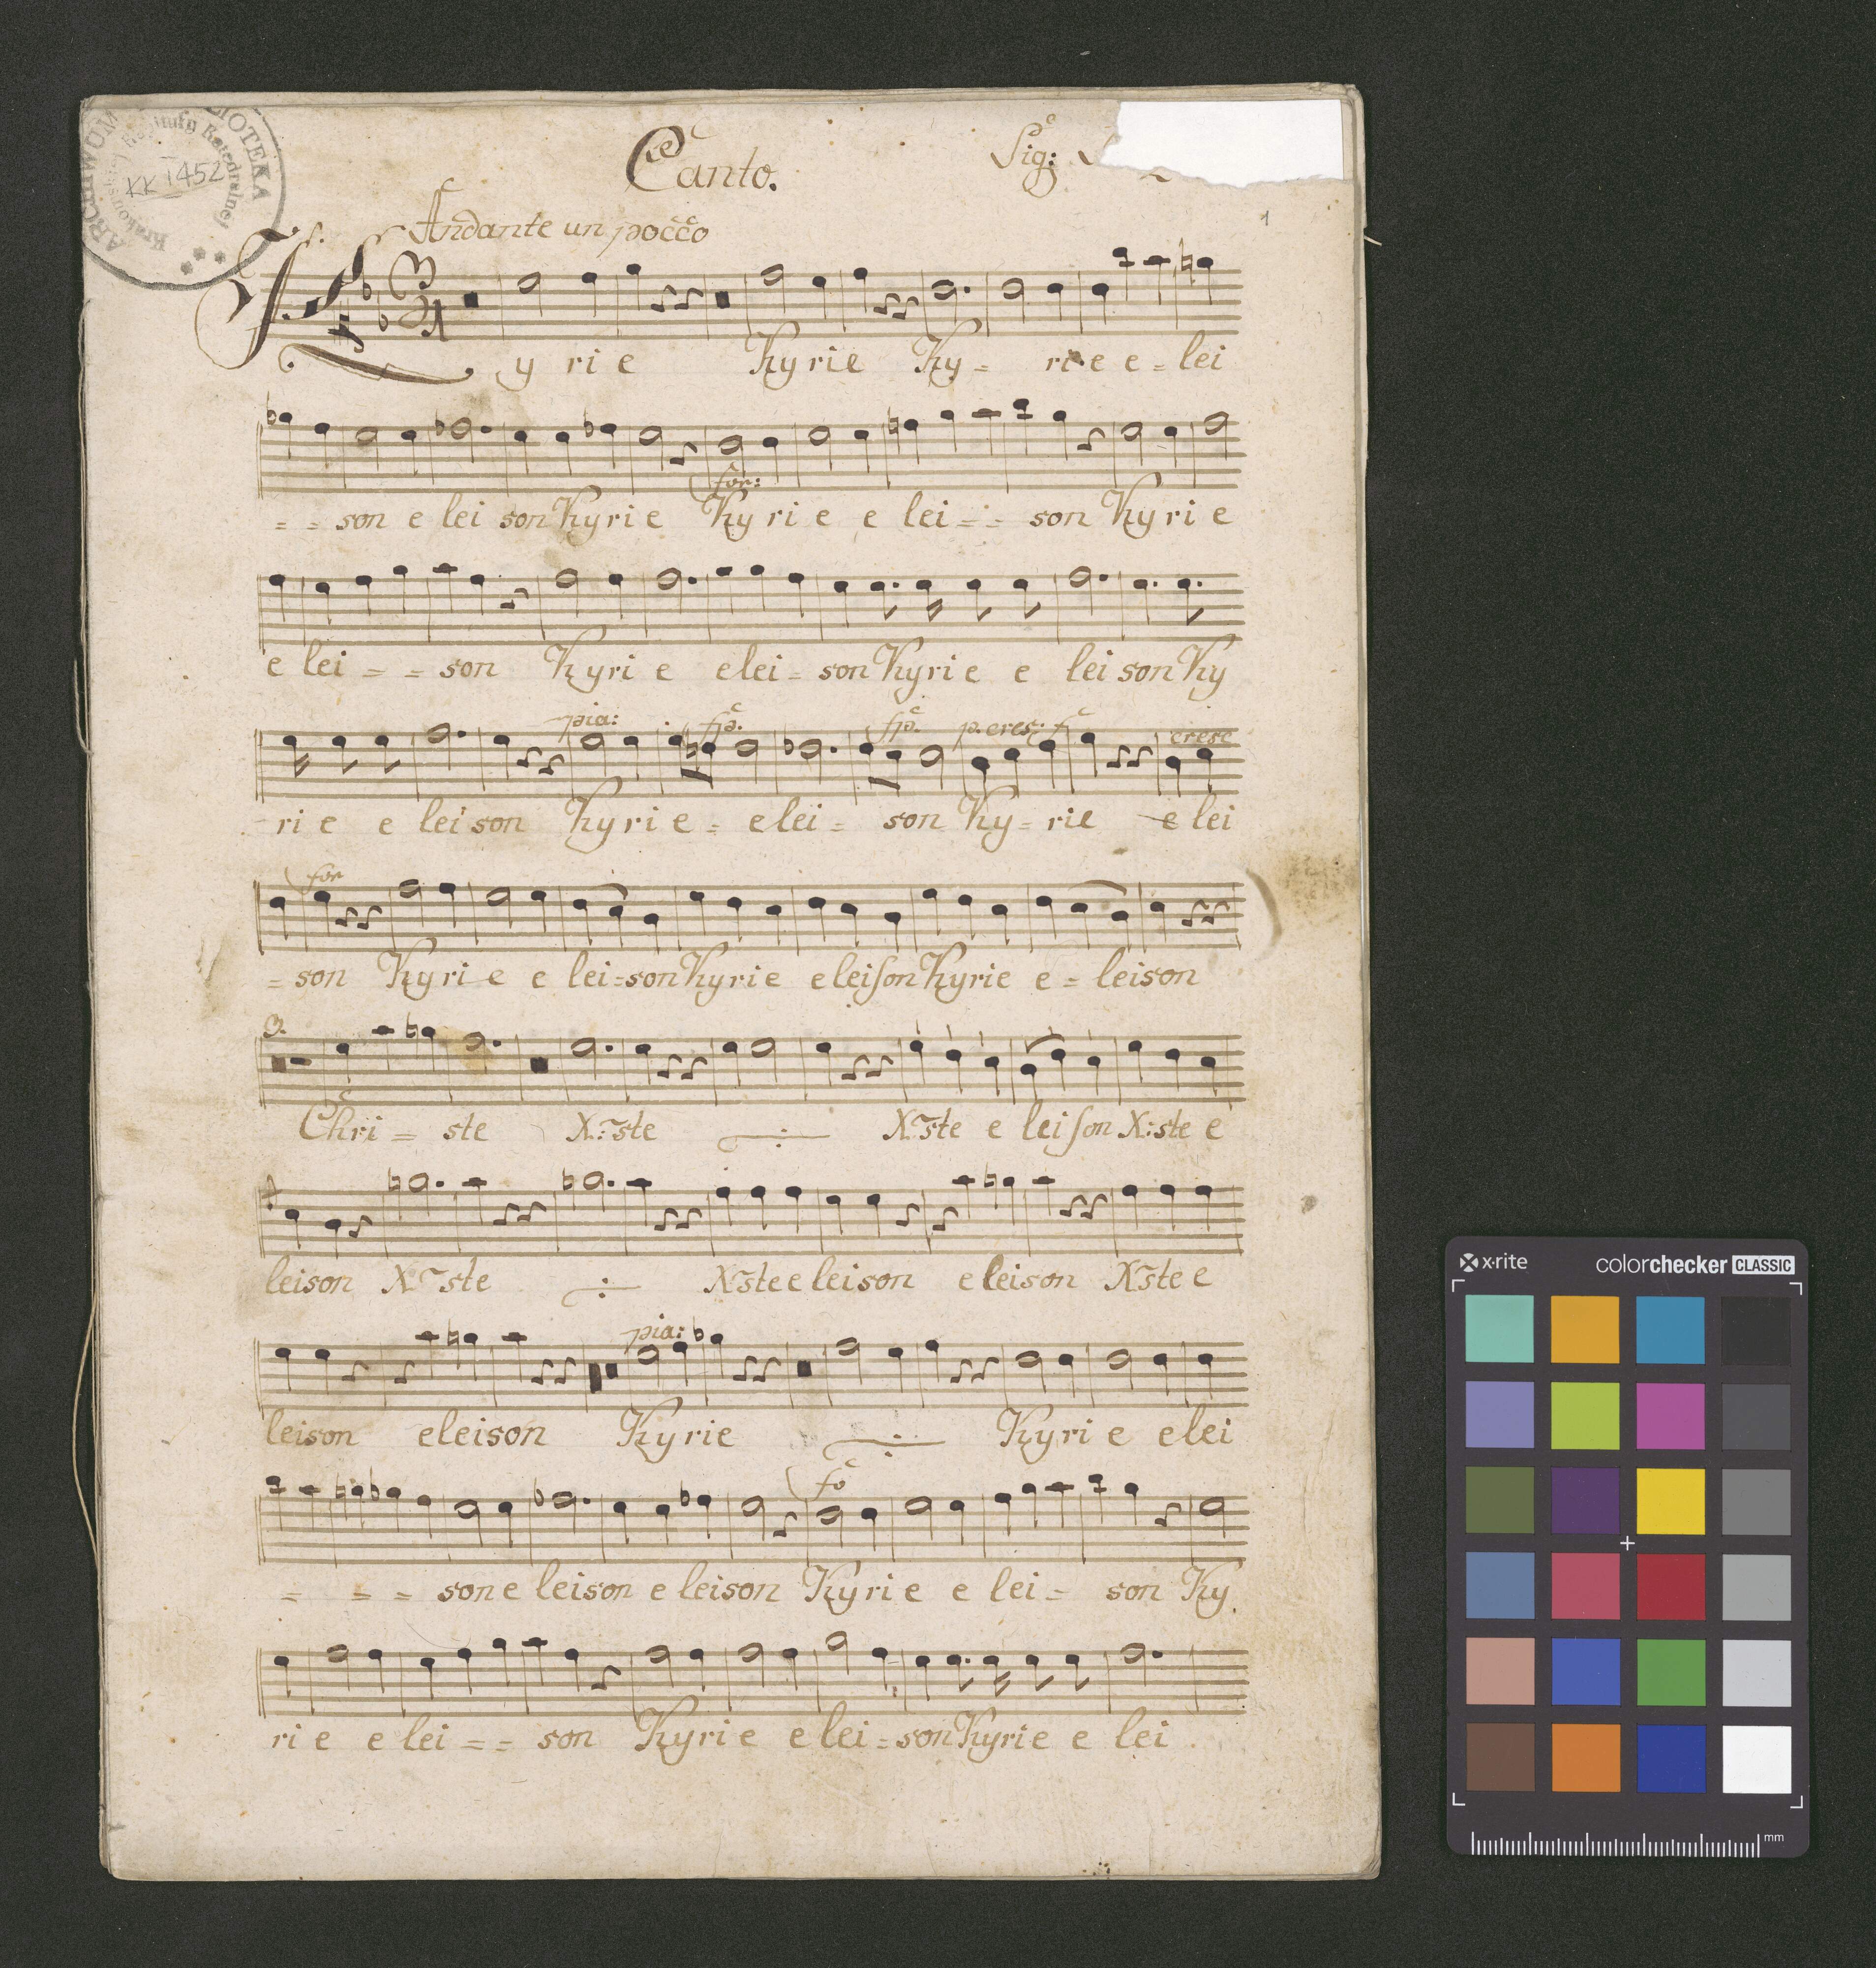 ARCHIWUM BIBLIOTEKA
Krakowskiej Kapituły Katedralnej
KK I 452
Canto.
Sig:
1
Andante un pocco
Ky ri e Kyrie Ky = ri e e = lei
= = son e lei son Kyri e Kyri e e lei = = son Kyri e
for:
e lei = = son Kyri e elei = son Kyri e e lei son Ky
pia: fp. fp. p. cres: f cresc
ri e e lei son Kyri e = elei = son Ky = rie e lei
for
= son Kyri e e lei = son Kyri e eleison Kyrie e = leison
3.
Chri = ste X:ste X:ste e leison X:ste e
leison X ste Xste e leison e leison Xste e
pia:
leison eleison Kyrie Kyri e elei
fo
= = = son e leison e leison Kyri e e lei = son Ky
ri e e lei = = son Kyri e e lei = son Kyri e e lei
x·rite
colorchecker CLASSIC
mm